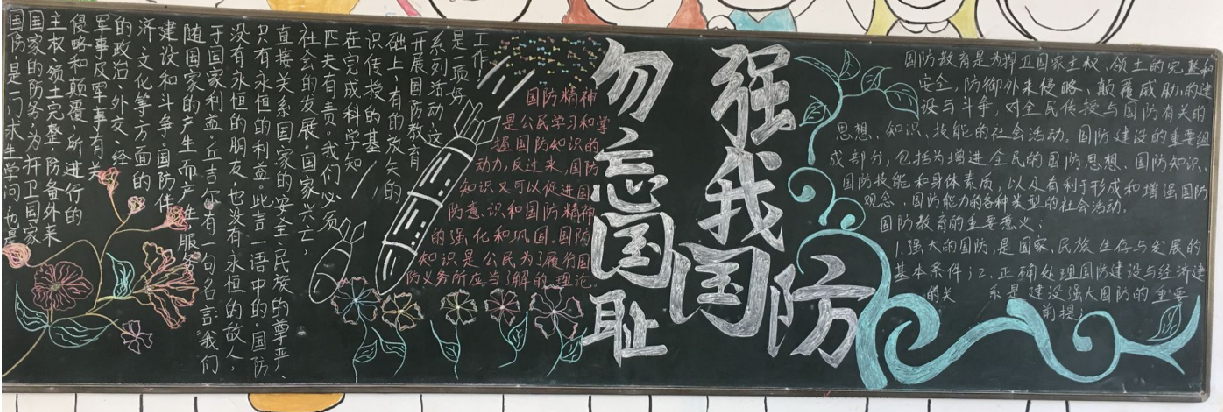 国防,是一门求生学问,也是
国家的防务,为开卫国家
主权、领土完整,防备外来
侵略和颠覆,所进行的
军事及军事有关
的政治、外交、经
济、文化等方面的
建设和斗争。国防伴
随国家的产生而产生,服
于国家利益。丘吉尔有一句名言:我们
没有永恒的朋友,也没有永恒的敌人,
只有永恒的利益。此言一语中的,国防
直接关系国家的安全、民族的尊严、
社会的发展。国家兴亡,
匹夫有责。我们必须
在完成科学知
识传授的基
础上,有的放矢的
开展国防教育
系列活动,这
是一项好
工作。
国防精神
是公民学习和掌
握国防知识的
动力,反过来,国防
知识又可以促进国
防意识和国防精神
的强化和巩固。国防
知识是公民为了履行国
防义务所应当了解的理论。
勿忘国耻
强我国防
国防教育是为捍卫国家主权、领土的完整和
安全,防御外来侵略、颠覆威胁,的建
设与斗争,对全民传授与国防有关的
思想、知识、技能的社会活动。国防建设的重要组
成部分,包括为增进全民的国防思想、国防知识、
国防技能和身体素质,以及有利于形成和增强国防
观念、国防能力的各种类型的社会活动。
国防教育的主要意义:
1.强大的国防是国家、民族生存与发展的
基本条件;2、正确处理国防建设与经济建
的关系是建设强大国防的重要
前提;